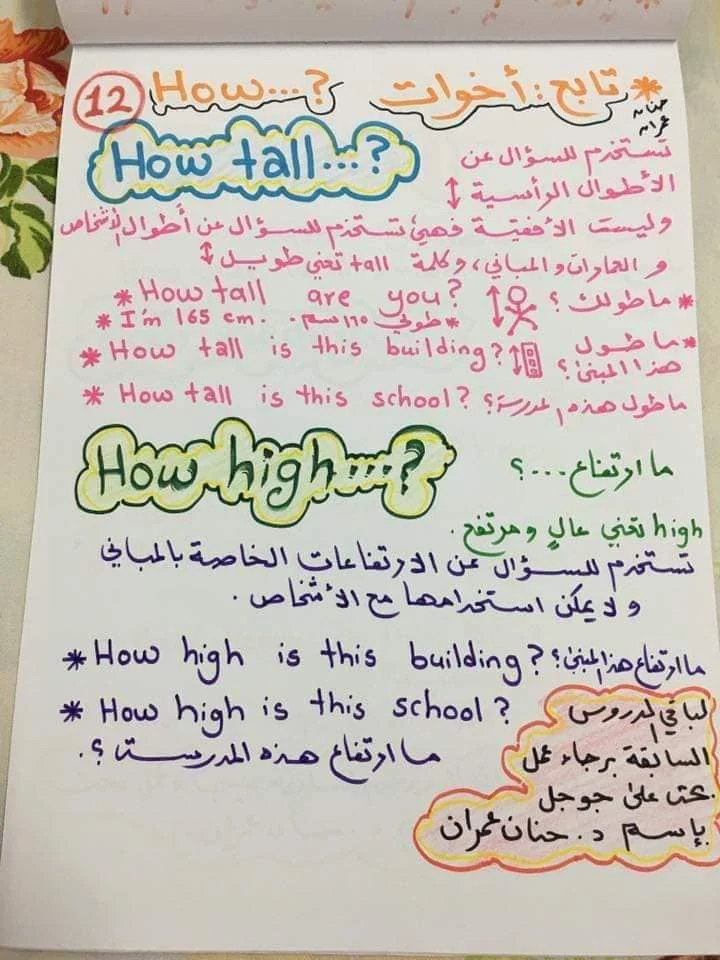 * تابع: أخوات How...? 12
حنان
عمران
How tall...?
تستخدم للسؤال عن
الأطوال الرأسية ↕
وليست الأفقية فهي تستخدم للسؤال عن أطوال الأشخاص
و العمارات و المباني، وكلمة tall تعني طويل ↕
* How tall are you? * ما طولك؟
* I'm 165 cm. * طولي ١٦٥ سم.
* How tall is this building? * ما طول
هذا المبنى؟
* How tall is this school? ما طول هذه المدرسة؟
How high...? ما ارتفاع...؟
high تعني عالٍ و مرتفع.
تستخدم للسؤال عن الارتفاعات الخاصة بالمباني
و لا يمكن استخدامها مع الأشخاص.
* How high is this building? ما ارتفاع هذا المبنى؟
* How high is this school?
ما ارتفاع هذه المدرسة؟.
لباقي الدروس
السابقة برجاء عمل
بحث على جوجل
بإسم د. حنان عمران